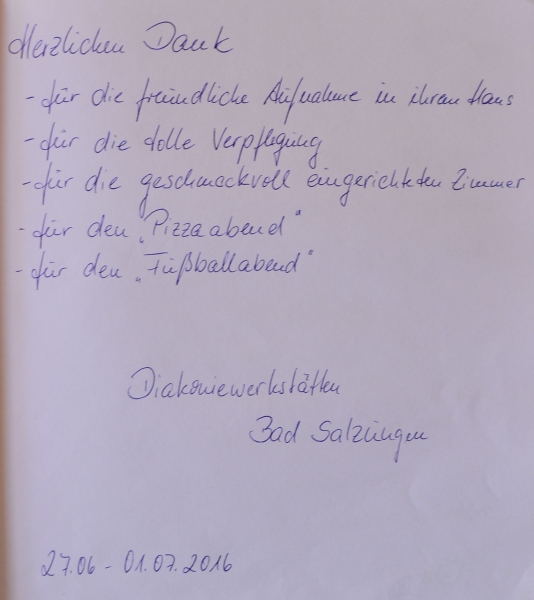 Herzlichen Dank
- für die freundliche Aufnahme in ihrem Haus
- für die tolle Verpflegung
- für die geschmackvoll eingerichteten Zimmer
- für den „Pizzaabend"
- für den „Fußballabend"
Diakoniewerkstätten
Bad Salzungen
27.06 - 01.07.2016